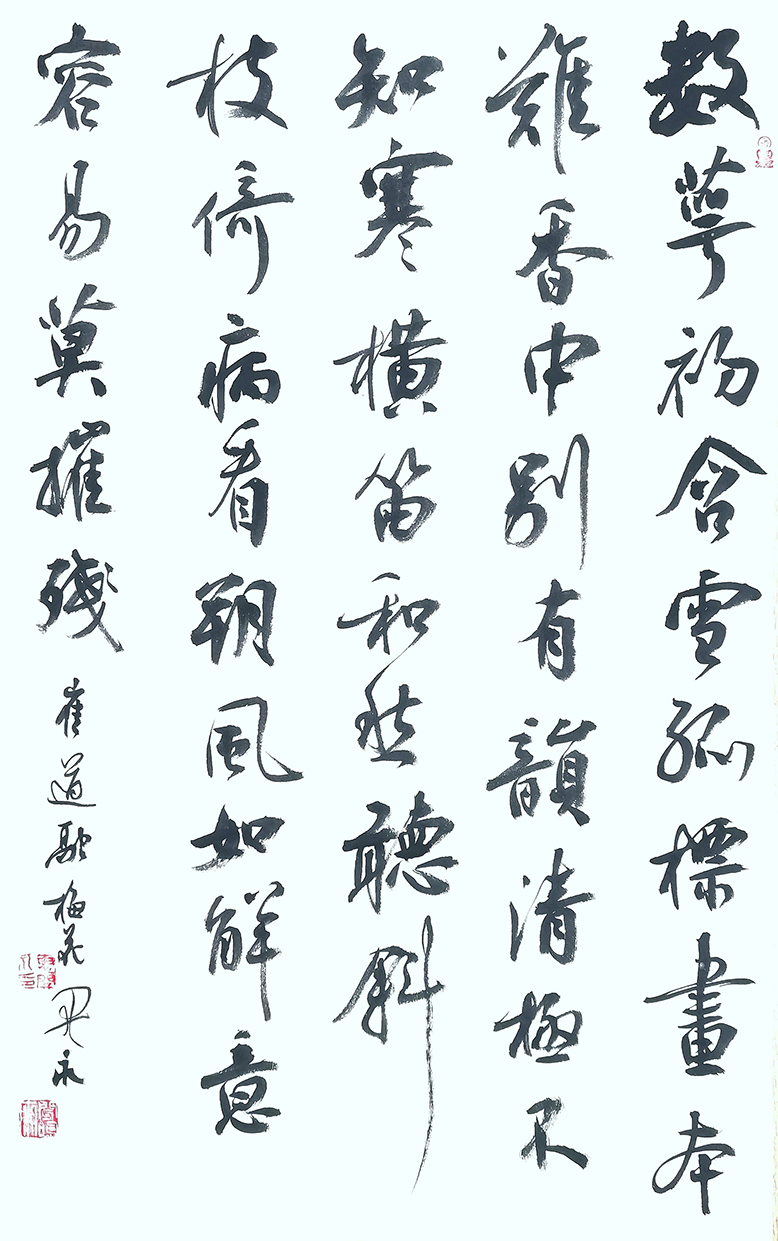 數萼初含雪孤標畫本
難香中別有韻清極不
知寒橫笛和愁聽斜
枝倚病看朔風如解意
容易莫摧殘 崔道融梅花 永